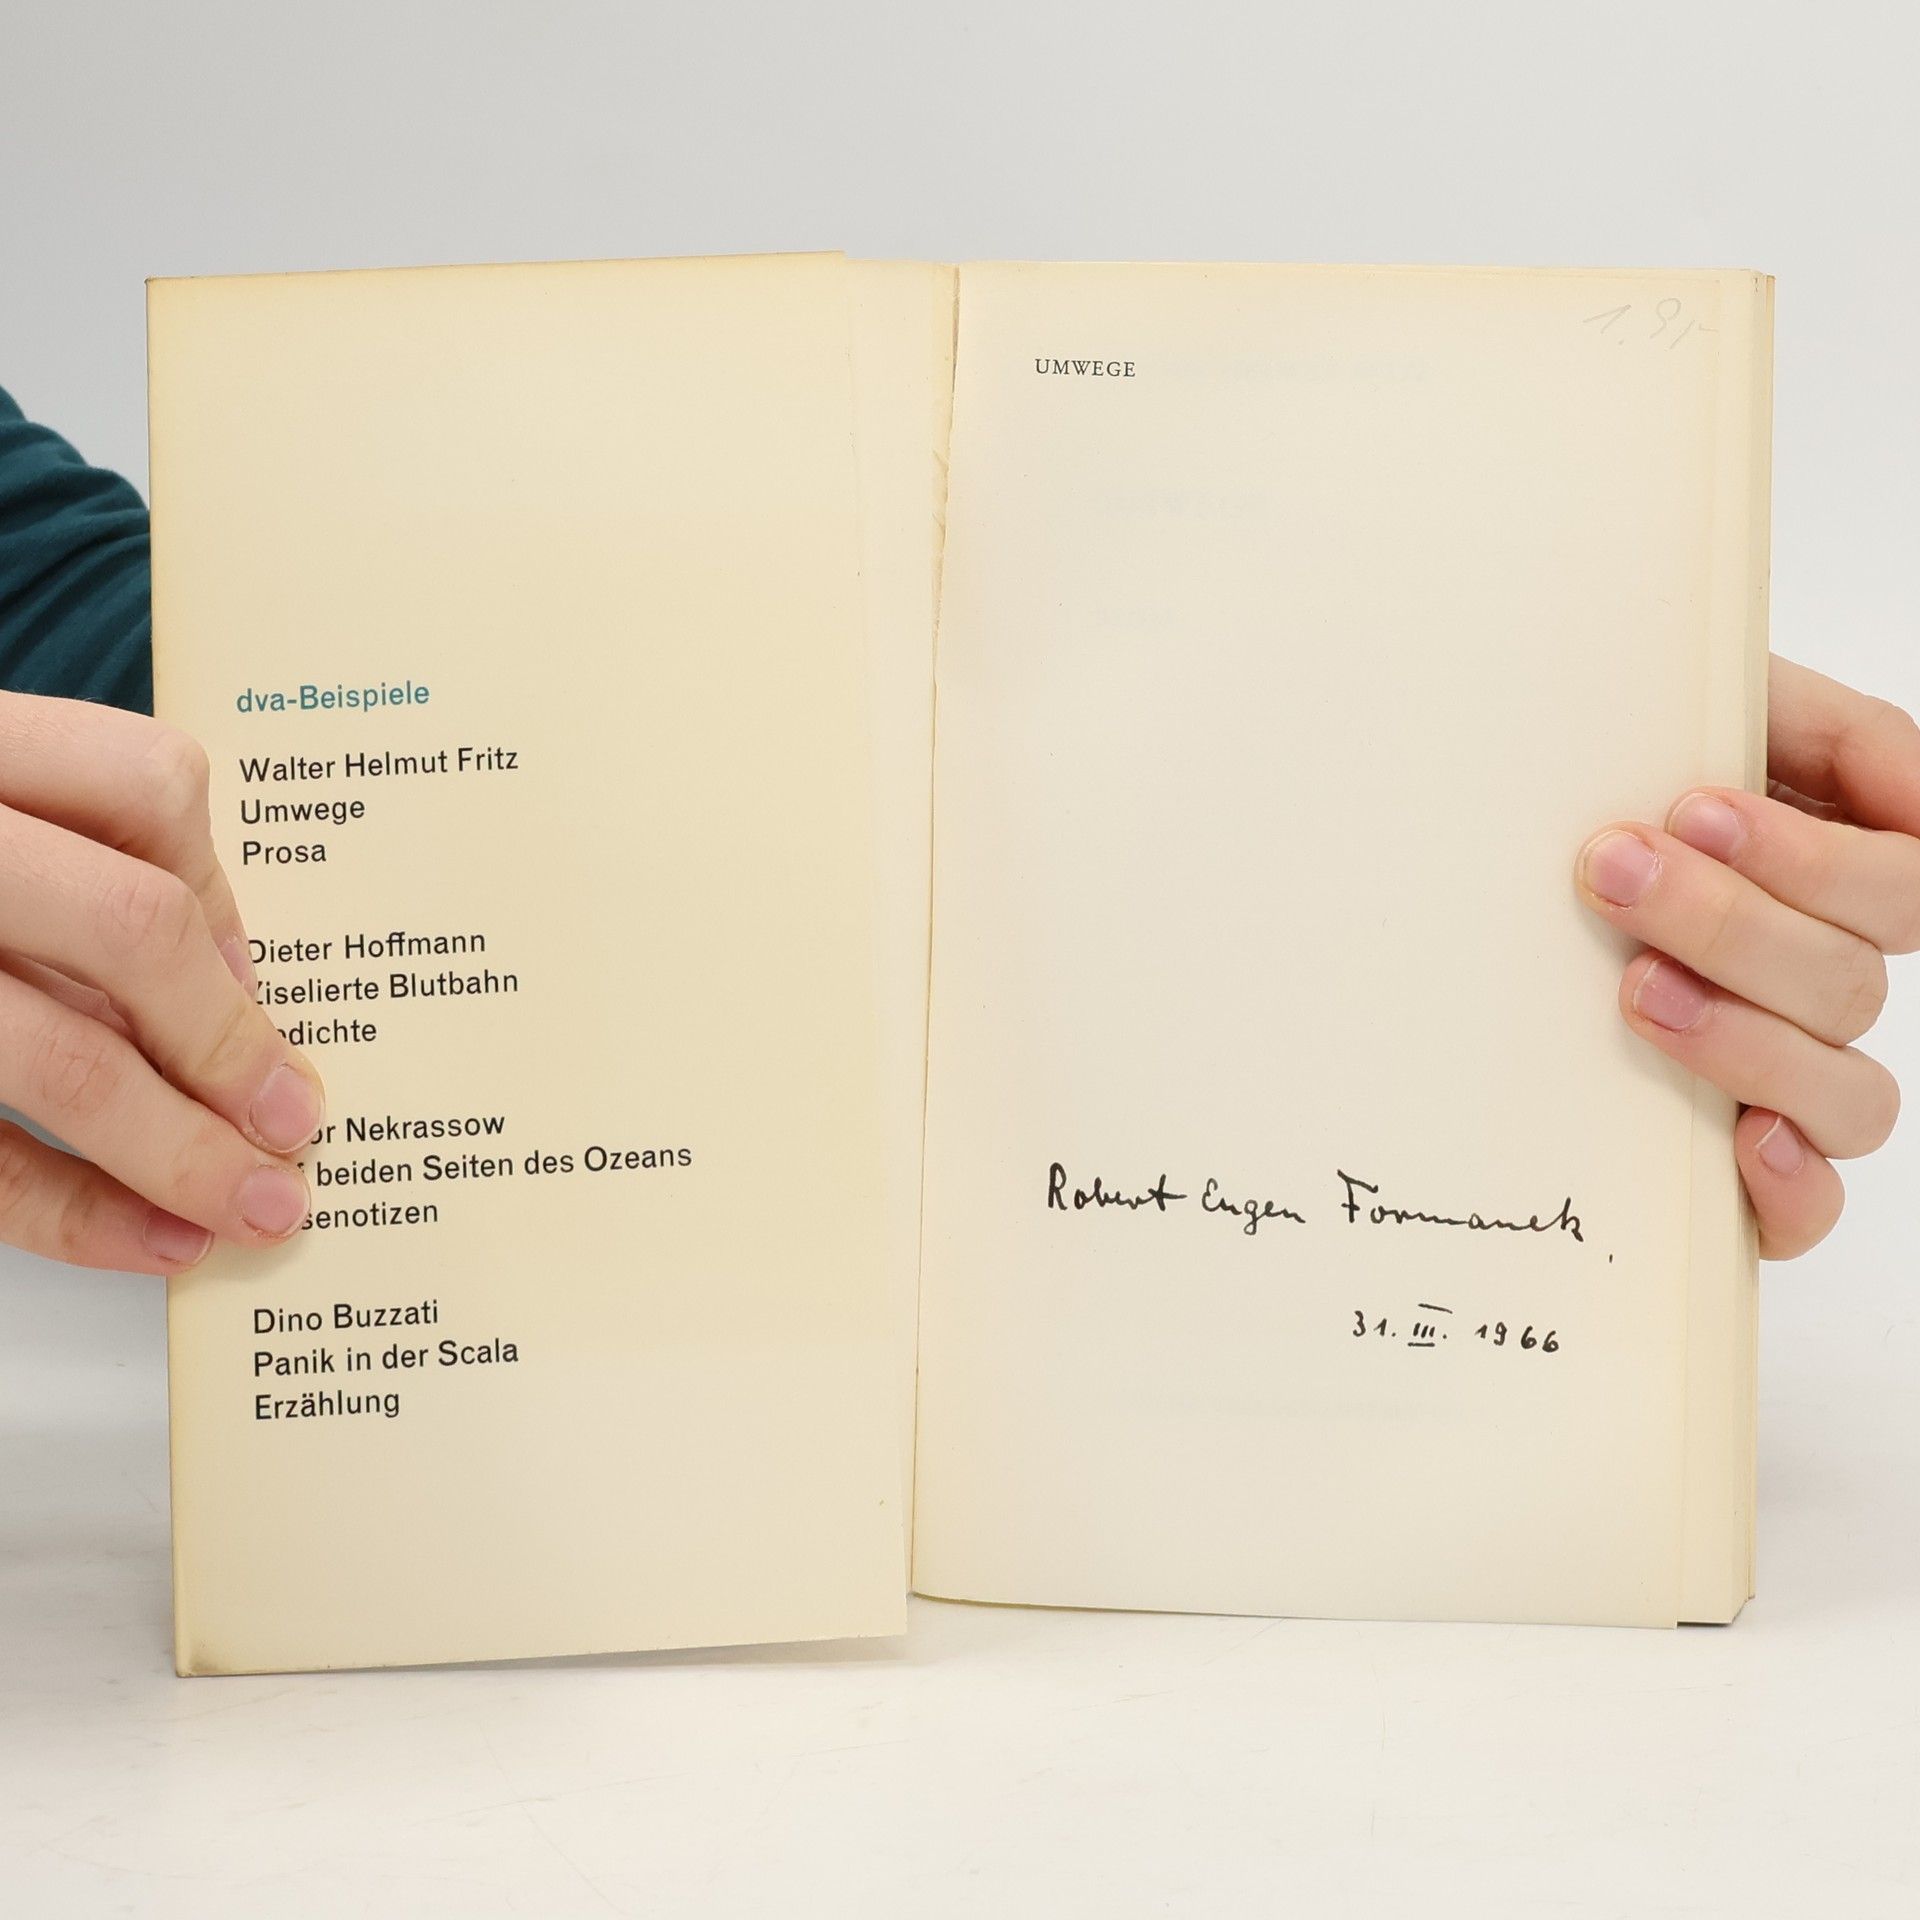 dva-Beispiele
Walter Helmut Fritz
Umwege
Prosa
Dieter Hoffmann
Ziselierte Blutbahn
Nekrassow
beiden Seiten des Ozeans
Dino Buzzati
Panik in der Scala
Erzählung
UMWEGE
Robert Eugen Formanek,
31. III. 1966